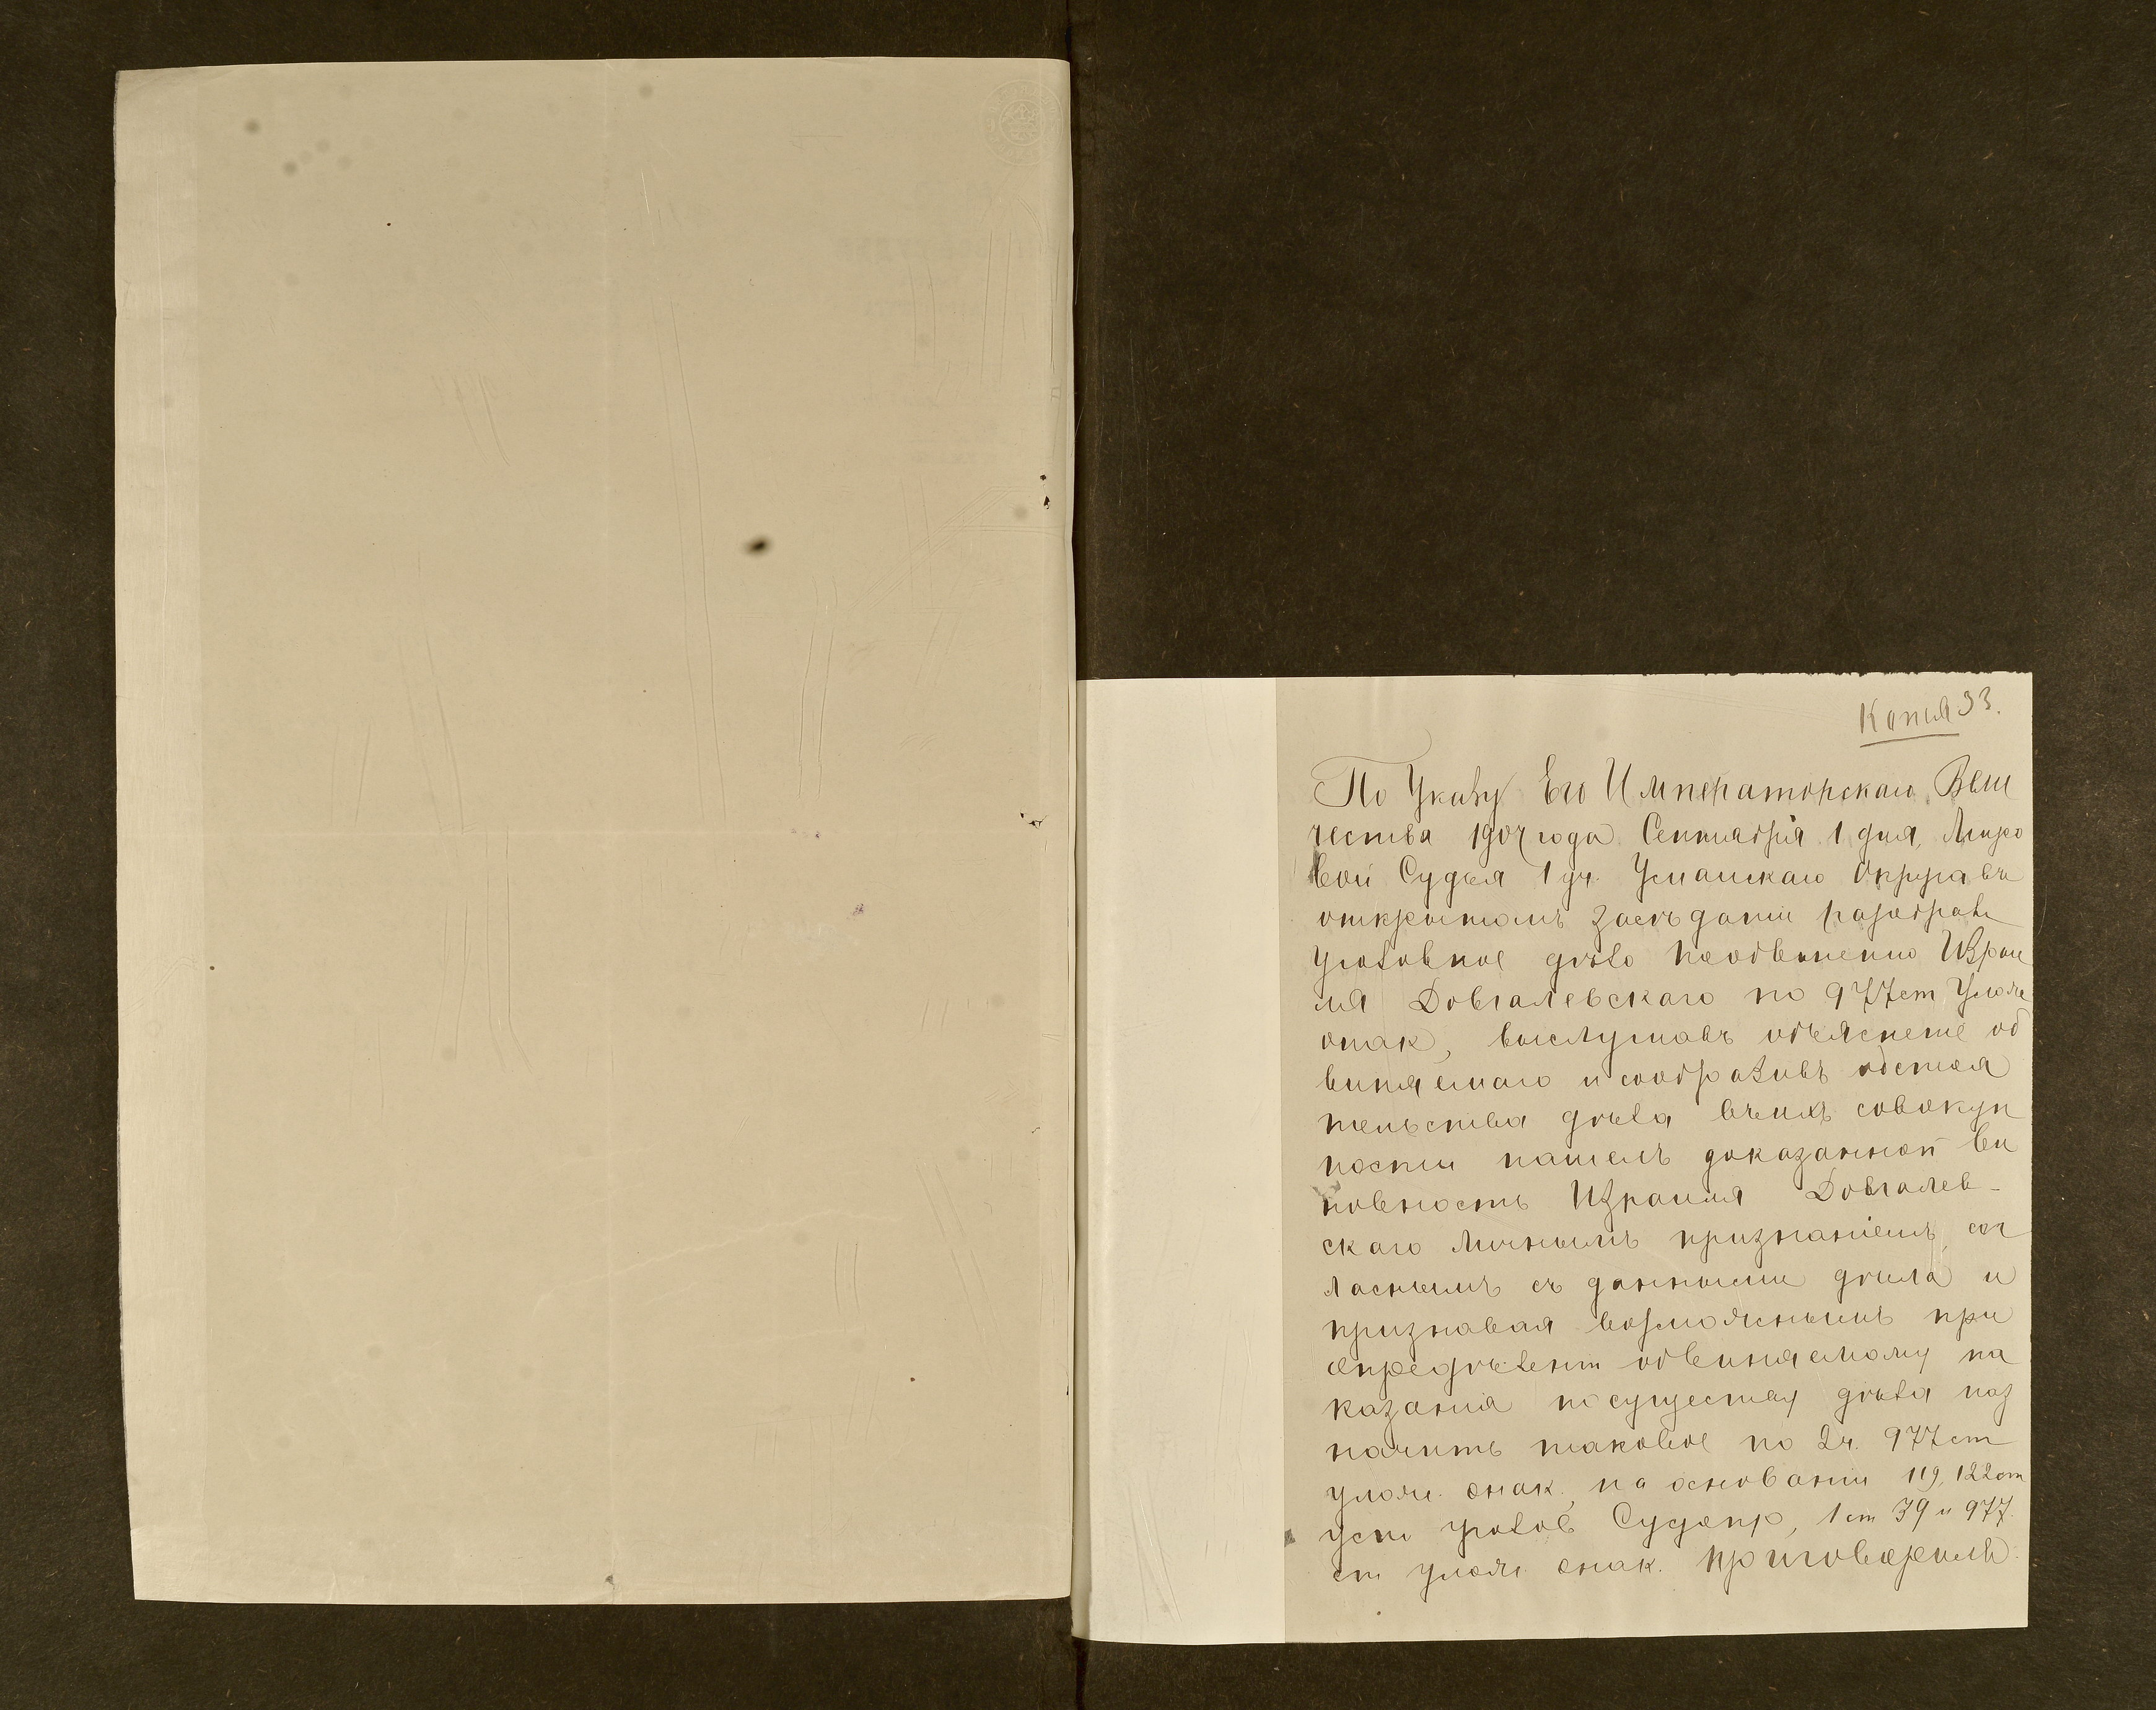 Копия 33.
По Указу Его Императорскаго Вели
чества 1904 года Сентября 1 дня, Миро
вой Судья 1 уч. Уманскаго Округа въ
открытомъ засѣданіи разобравъ
уголовное дѣло пообвиненію Израи
ля Довгалевскаго по 977 ст. Улож
онак, выслушавъ объясненіе об
виняемаго и сообразивъ обстоя
тельства дѣла въихъ совокуп
ности нашелъ доказанной ви
новность Израиля Довгалев-
скаго личнымъ признаніемъ, сог
ласнымъ съ данными дѣла и
признавая возможнымъ при
опредѣленіи обвиняемому на
казанія посуществу дѣла наз
начить таковое по 2 ч. 977 ст
улож. онак., на основаніи 119, 122 ст
уст уголов Судопр, 1 ст 39 и 977.
ст улож. онак. приговорилъ: